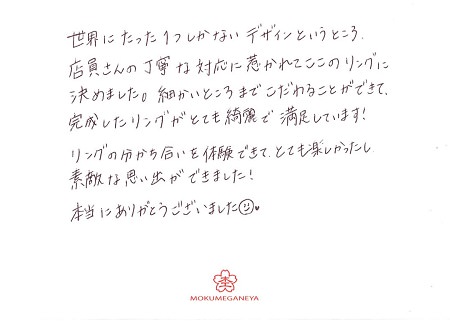 世界にたった1つしかないデザインというところ、
店員さんの丁寧な対応に惹かれてここのリングに
決めました。細かいところまでこだわることができて、
完成したリングがとても綺麗で満足しています!
リングの分かち合いを体験できて、とても楽しかったし
素敵な思い出ができました!
本当にありがとうございました
MOKUMEGANEYA